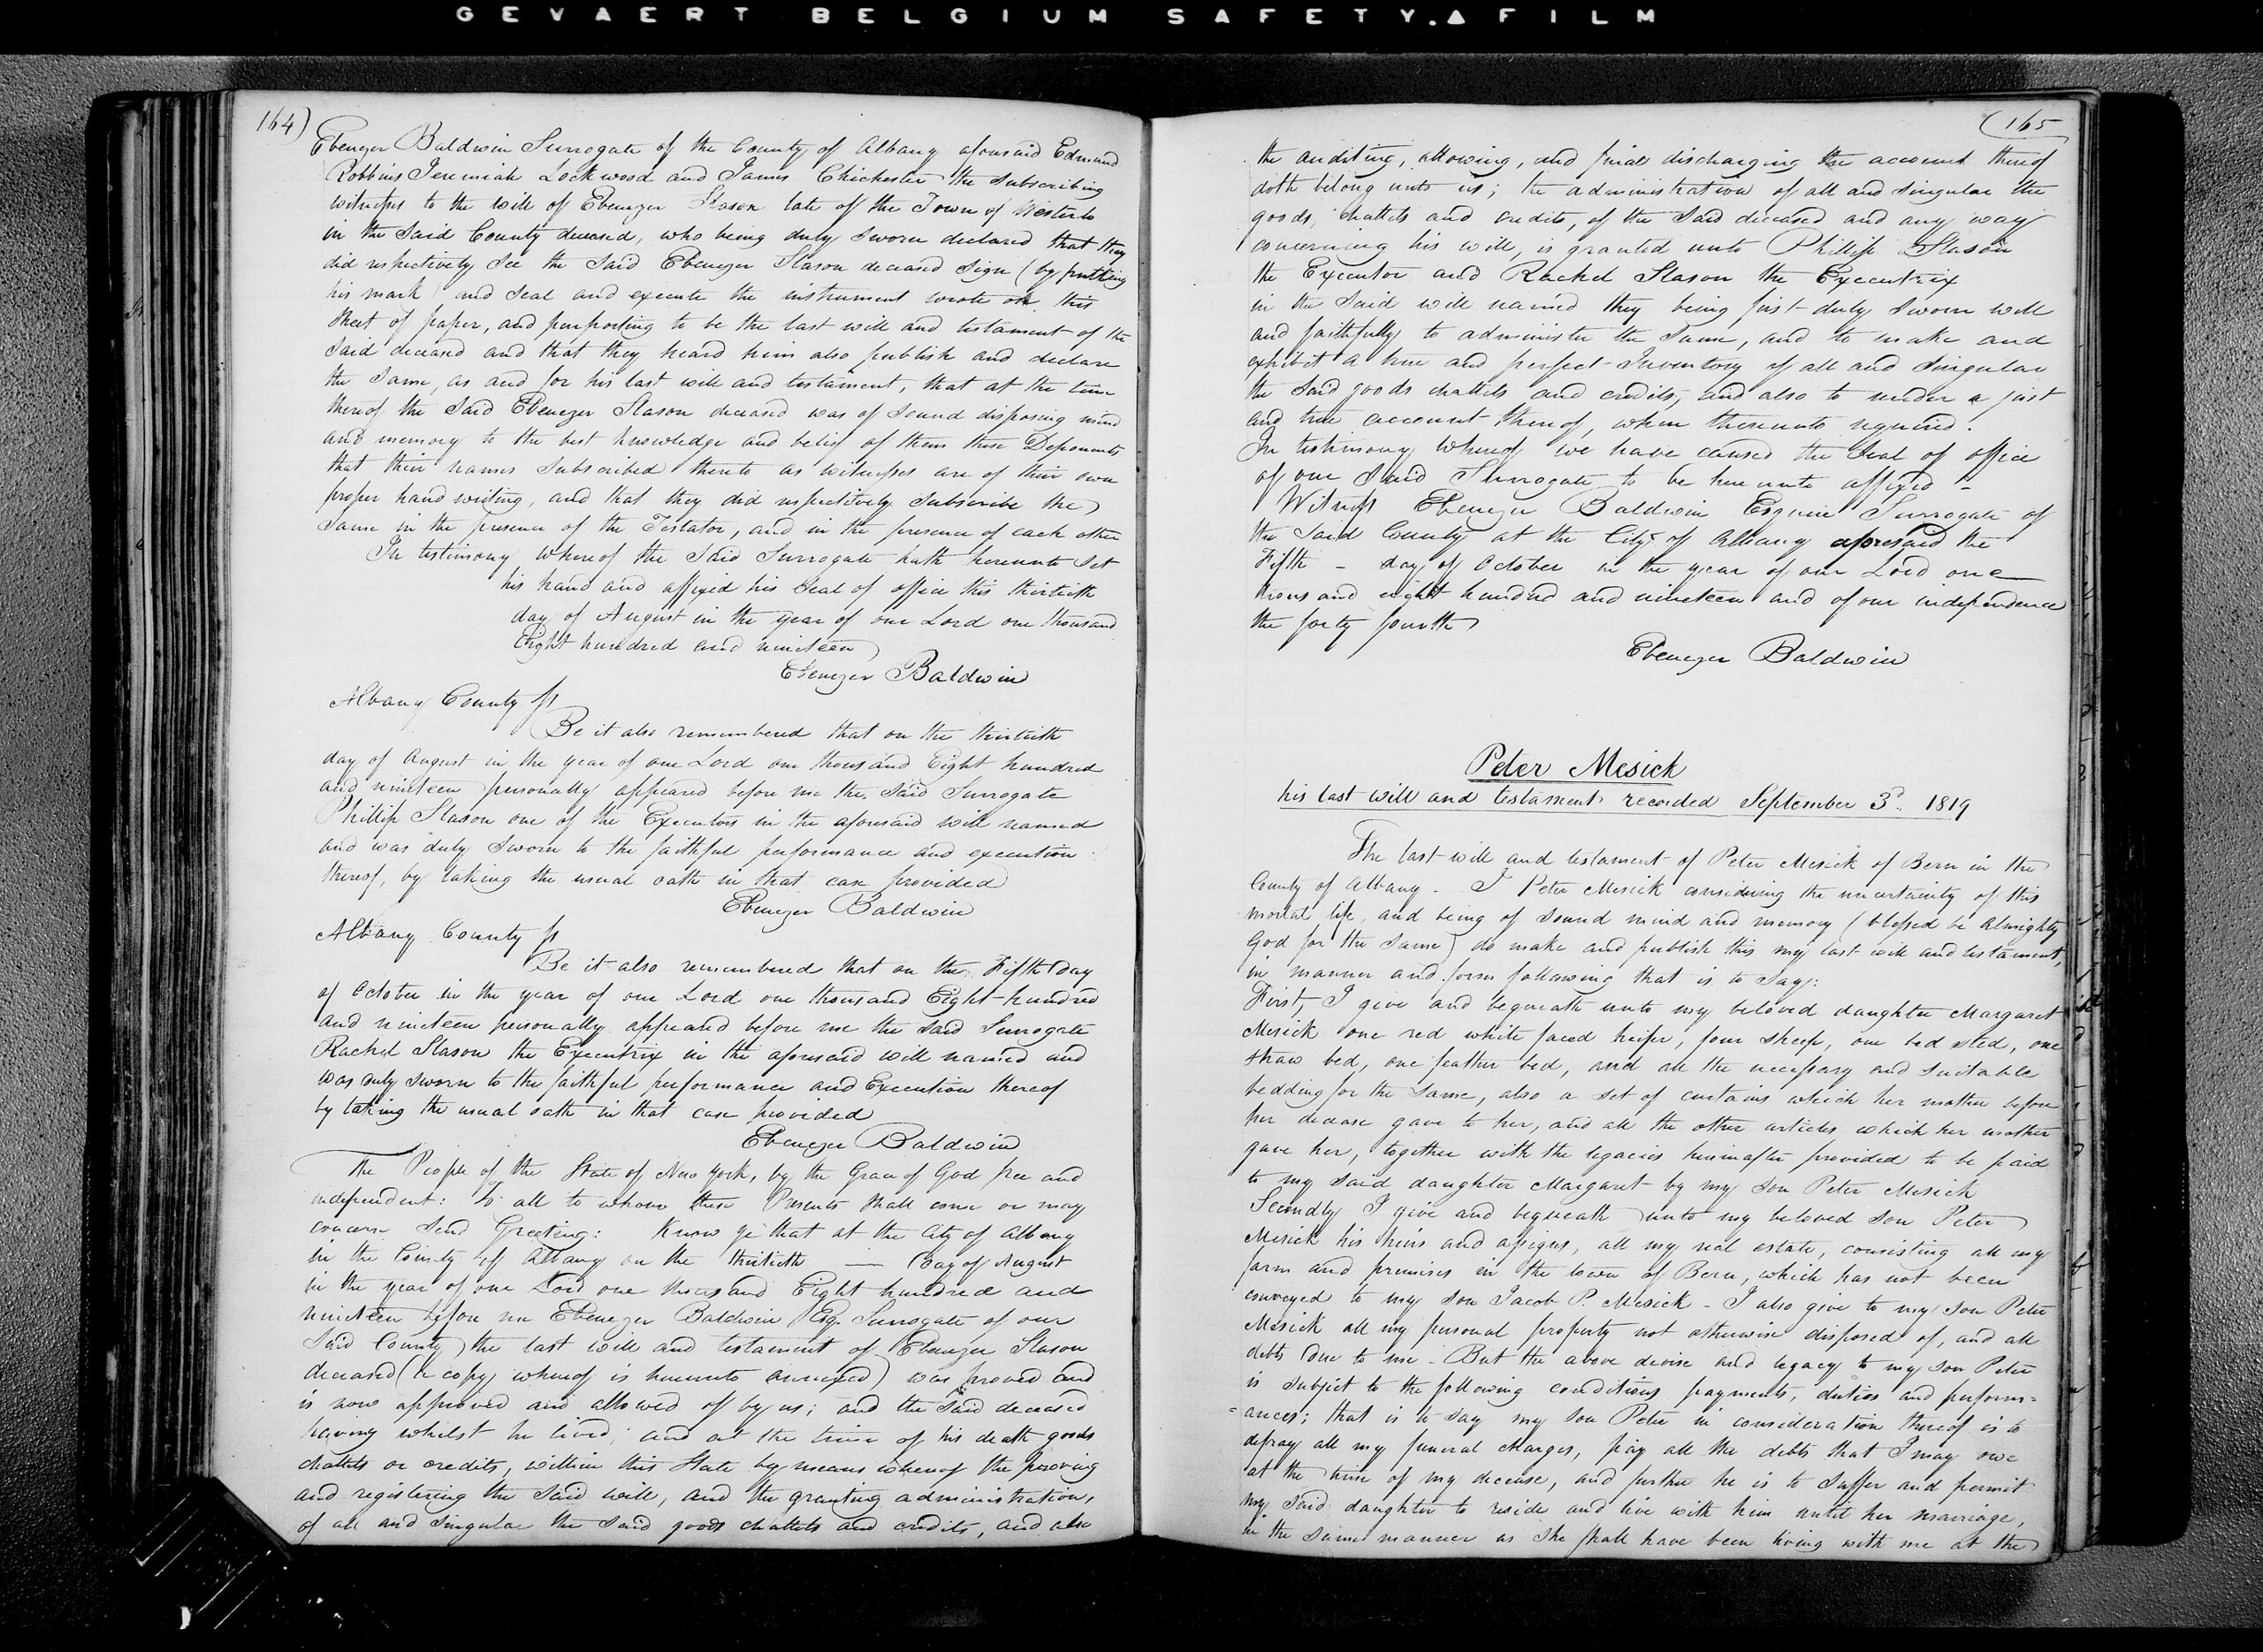 GEVAERT BELGIUM SAFETY.▲FILM
164)
Ebenezer Baldwin Surrogate of the County of Albany aforesaid Edmund
Robbins Jeremiah Lockwood and James Chichester the subscribing
witnesses to the will of Ebenezer Slason late of the Town of Westerlo
in the said County deceased, who being duly sworn declared that they
did respectively see the said Ebenezer Slason deceased sign (by putting
his mark) and seal and execute the instrument wrote on this
sheet of paper, and purporting to be the last will and testament of the
said deceased and that they heard him also publish and declare
the same, as and for his last will and testament, that at the time
thereof the said Ebenezer Slason deceased was of sound disposing mind
and memory to the best knowledge and belief of them these Deponents
that their names subscribed thereto as witnesses are of their own
proper hand writing, and that they did respectively subscribe the
same in the presence of the Testator, and in the presence of each other
In testimony whereof the said Surrogate hath hereunto set
his hand and affixed his seal of office this thirtieth
day of August in the year of our Lord one thousand
Eight hundred and nineteen
Ebenezer Baldwin
Albany County ss
Be it also remembered that on the thirtieth
day of August in the year of our Lord one thousand Eight hundred
and nineteen personally appeared before me the said Surrogate
Phillip Slason one of the Executors in the aforesaid will named
and was duly sworn to the faithful performance and execution
thereof, by taking the usual oath in that case provided
Ebenezer Baldwin
Albany County ss
Be it also remembered that on the Fifth day
of October in the year of our Lord one thousand Eight-hundred
and nineteen personally appeared before me the said Surrogate
Rachel Slason the Executrix in the aforesaid will named and
was duly sworn to the faithful performance and Execution thereof
by taking the usual oath in that case provided
Ebenezer Baldwin
The People of the State of New York, by the Grace of God free and
independent: To all to whom these Presents shall come or may
concern Send Greeting: Know ye that at the City of Albany
in the County of Albany on the thirtieth — Day of August
in the year of our Lord one thousand Eight hundred and
nineteen before me Ebenezer Baldwin Esqr. Surrogate of our
said County the last will and testament of Ebenezer Slason
deceased (a copy whereof is hereunto annexed) was proved and
is now approved and allowed of by us; and the said deceased
having whilst he lived, and at the time of his death goods
chattels or credits, within this State by means whereof the proving
and registering the said will, and the granting administration,
of all and singular the said goods chattels and credits, and also
(165
the auditing, allowing, and final discharging the account thereof
doth belong unto us; the administration of all and singular the
goods, chattels and credits, of the said deceased and any way
concerning his will, is granted unto Phillip Slason
the Executor and Rachel Slason the Executrix
in the said will named they being first duly sworn well
and faithfully to administer the same, and to make and
exhibit a true and perfect Inventory of all and singular
the said goods chattels and credits, and also to render a just
and true account thereof, when thereunto required.
In testimony whereof we have caused the Seal of office
of our said Surrogate to be hereunto affixed -
Witness Ebenezer Baldwin Esquire Surrogate of
the said County at the City of Albany aforesaid the
Fifth - day of October in the year of our Lord one
thousand eight hundred and nineteen and of our independence
the forty fourth
Ebenezer Baldwin
Peter Mesick
his last will and testament recorded September 3d. 1819
The last will and testament of Peter Mesick of Bern in the
County of Albany - I Peter Mesick considering the uncertainty of this
mortal life, and being of sound mind and memory (blessed be Almighty
God for the same) do make and publish this my last will and testament,
in manner and form following that is to say:
First, I give and bequeath unto my beloved daughter Margaret
Mesick one red white faced heifer, four sheep, one bed sted, one
straw bed, one feather bed, and all the necessary and suitable
bedding for the same, also a set of curtains which her mother before
her decease gave to her, and all the other articles which her mother
gave her, together with the legacies hereinafter provided to be paid
to my said daughter Margaret by my son Peter Mesick
Secondly I give and bequeath unto my beloved son Peter
Mesick his heirs and assigns, all my real estate, consisting all my
farm and premises in the town of Bern, which has not been
conveyed to my son Jacob P. Mesick - I also give to my son Peter
Mesick all my personal property not otherwise disposed of, and all
debts due to me - But the above devise and legacy to my son Peter
is subject to the following conditions payments, duties and perform=
=ances; that is to say my son Peter in consideration thereof is to
defray all my funeral charges, pay all the debts that I may owe
at the time of my decease, and further he is to suffer and permit
my said daughter to reside and live with him until her marriage,
in the same manner as she shall have been living with me at the